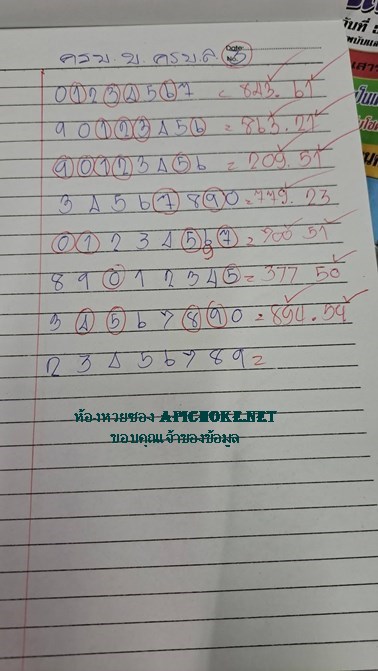 ครบ.บ. ครบ.ล. 5
Date
No.
01234567 = 843.61
90123456 = 863.21
90123456 = 209.51
34567890 = 779.23
01234567 = 900 51
89012345 = 377 50
34567890 = 894.54
23456789 =
ห้องหวยซอง APICHOKE.NET
ขอบคุณเจ้าของข้อมูล